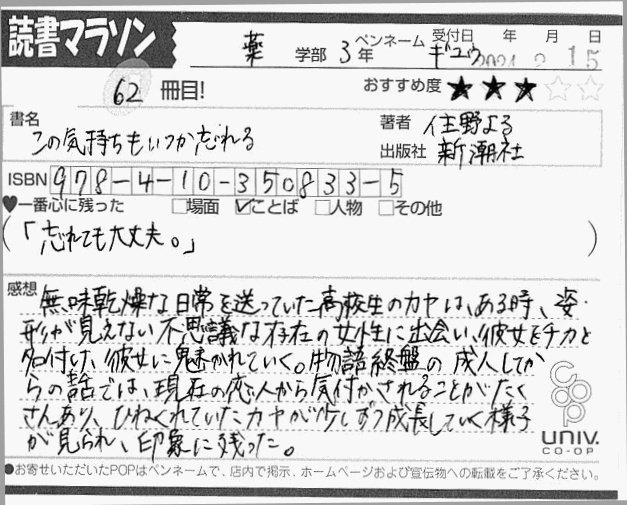 読書マラソン
薬 学部 3年 ペンネーム ギユウ 受付日 年 月 日
2021 2 15
62 冊目! おすすめ度 ★★★☆☆
書名 この気持ちもいつか忘れる
著者 住野よる
出版社 新潮社
ISBN 978-4-10-350833-5
♥一番心に残った □場面 ☑ことば □人物 □その他
(「忘れても大丈夫。」)
感想 無味乾燥な日常を送っていた高校生のカヤは、ある時、姿・
形が見えない不思議な存在の女性に出会い、彼女をチカと
名付け、彼女に魅かれていく。物語終盤の成人してか
らの話では、現在の恋人から気付かされることがたく
さんあり、ひねくれていたカヤが少しずつ成長していく様子
が見られ、印象に残った。
coop
UNIV.
CO-OP
●お寄せいただいたPOPはペンネームで、店内で掲示、ホームページおよび宣伝物への転載をご了承ください。